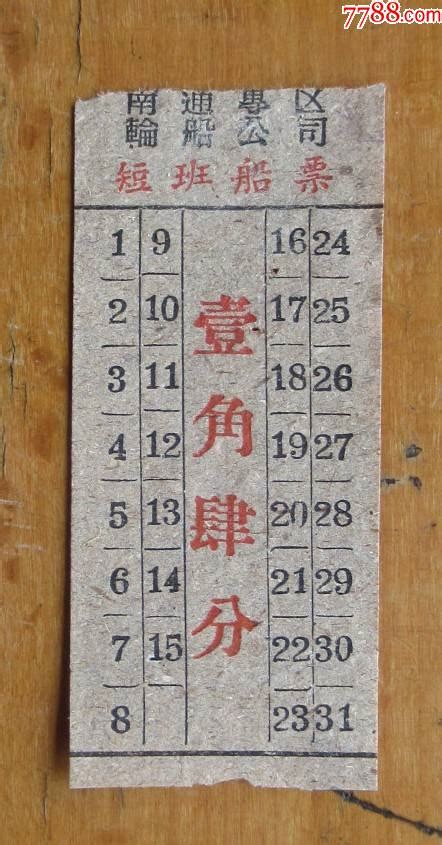 7788.com
南通專区
輪船公司
短班船票
1 9 16 24
2 10 17 25
3 11 18 26
4 12 19 27
5 13 20 28
6 14 21 29
7 15 22 30
8 23 31
壹角肆分